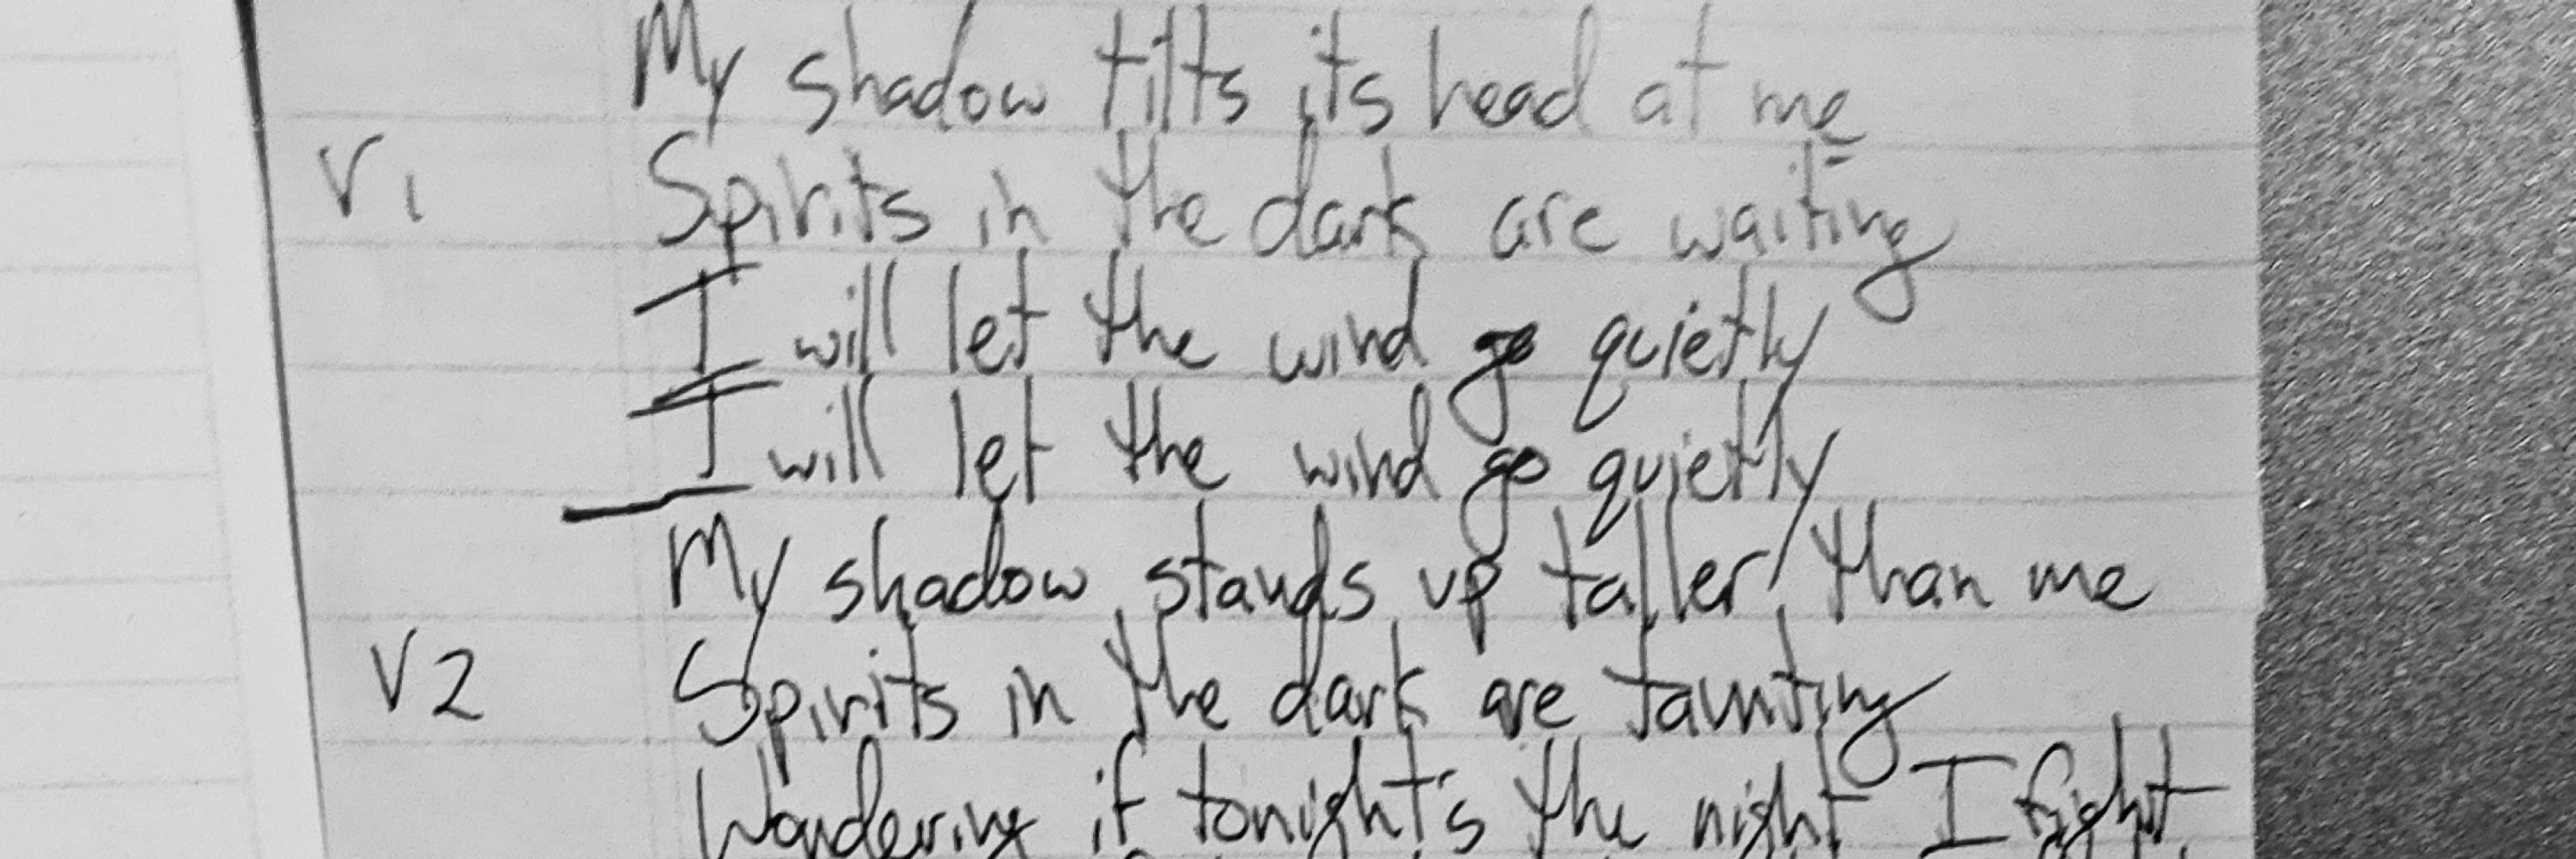 My shadow tilts its head at me
V1 Spirits in the dark are waiting
I will let the wind go quietly
I will let the wind go quietly
My shadow stands up taller than me
V2 Spirits in the dark are taunting
Wondering if tonight's the night I fight